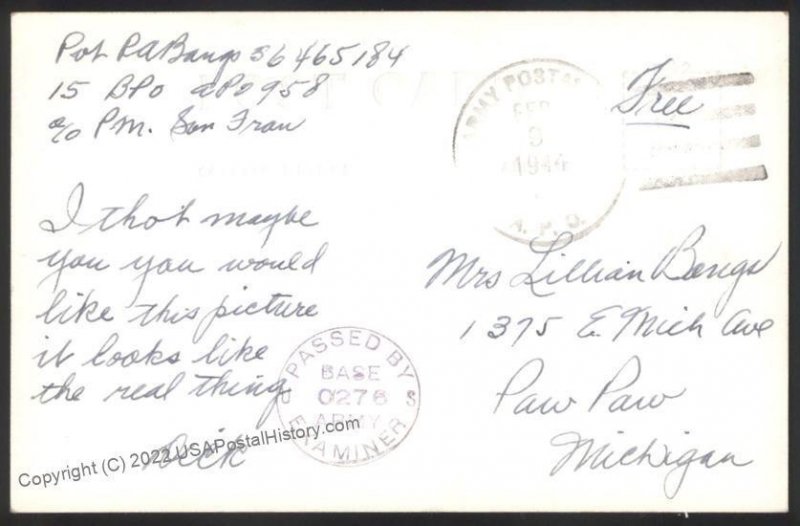 Pvt R A Bangs 36465184
15 BPO APO 958
c/o PM. San Fran
ARMY POSTAL
FEB
9
1944
A. P. O.
Free
I thot maybe
you you would
like this picture
it looks like
the real thing
Dick
Mrs Lillian Bangs
1375 E. Mich Ave
Paw Paw
Michigan
PASSED BY
BASE
0276
ARMY
EXAMINER
S
Copyright (C) 2022 USAPostalHistory.com